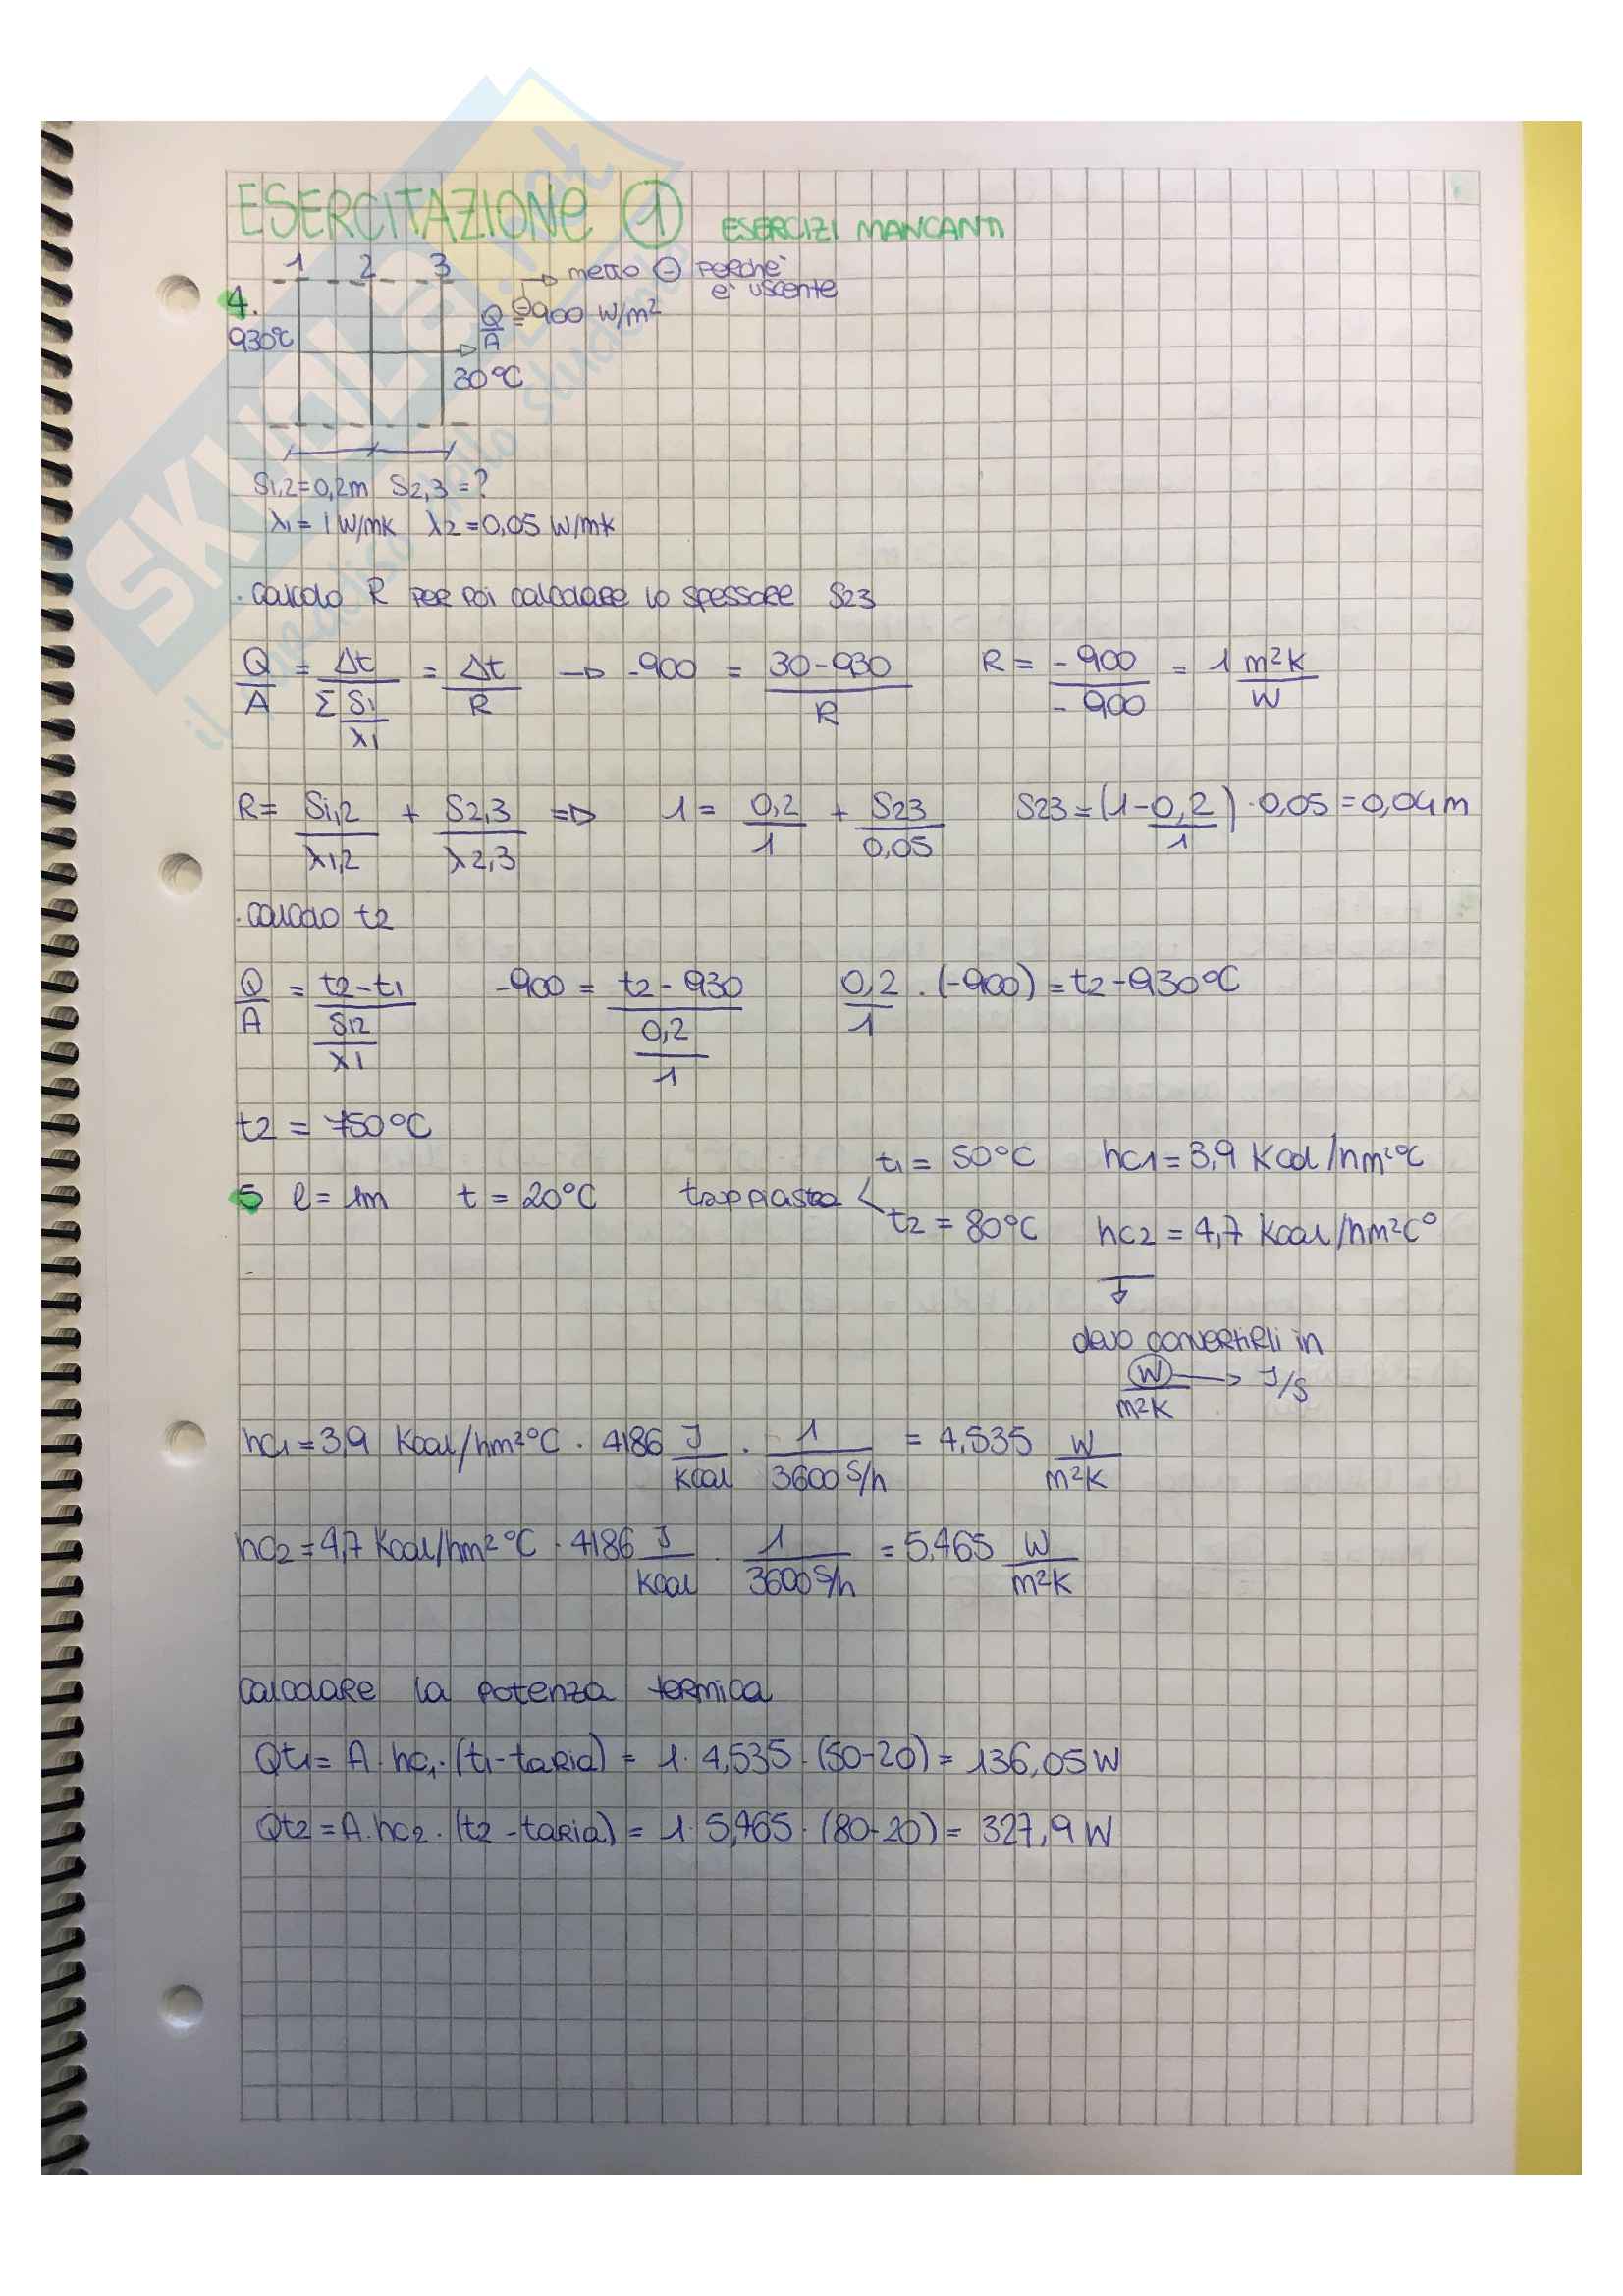 ESERCITAZIONE 1 ESERCIZI MANCANTI
1 2 3 → metto ⊖ perchè è uscente
4. 930°C Q/A = -900 W/m²
30°C
S1,2=0,2m S2,3=?
λ1= 1 W/mk λ2=0,05 W/mk
· calcolo R per poi calcolare lo spessore S23
Q/A = Δt/(Σ S1/λ1) = Δt/R → -900 = (30-930)/R R = -900/-900 = 1 m²K/W
R = S1,2/λ1,2 + S2,3/λ2,3 ⇒ 1 = 0,2/1 + S23/0,05 S23=(1-0,2/1)·0,05=0,04m
· calcolo t2
Q/A = (t2-t1)/(S12/λ1) -900 = (t2-930)/(0,2/1) 0,2/1 · (-900) = t2-930°C
t2 = 750°C
5 l = 1m t = 20°C tra piastra < t1 = 50°C hc1=3,9 Kcal/hm²°C
t2 = 80°C hc2 = 4,7 Kcal/hm²C°
↓
devo convertirli in
W/m²K → J/s
hc1=3,9 Kcal/hm²°C · 4186 J/kcal · 1/3600 s/h = 4,535 W/m²K
hc2=4,7 Kcal/hm²°C · 4186 J/kcal · 1/3600 s/h = 5,465 W/m²K
calcolare la potenza termica
Qt1= A·hc1·(t1-taria) = 1·4,535·(50-20)= 136,05W
Qt2=A·hc2·(t2-taria)= 1·5,465·(80-20)= 327,9W
SKUOLA.net
il paradiso dello studente